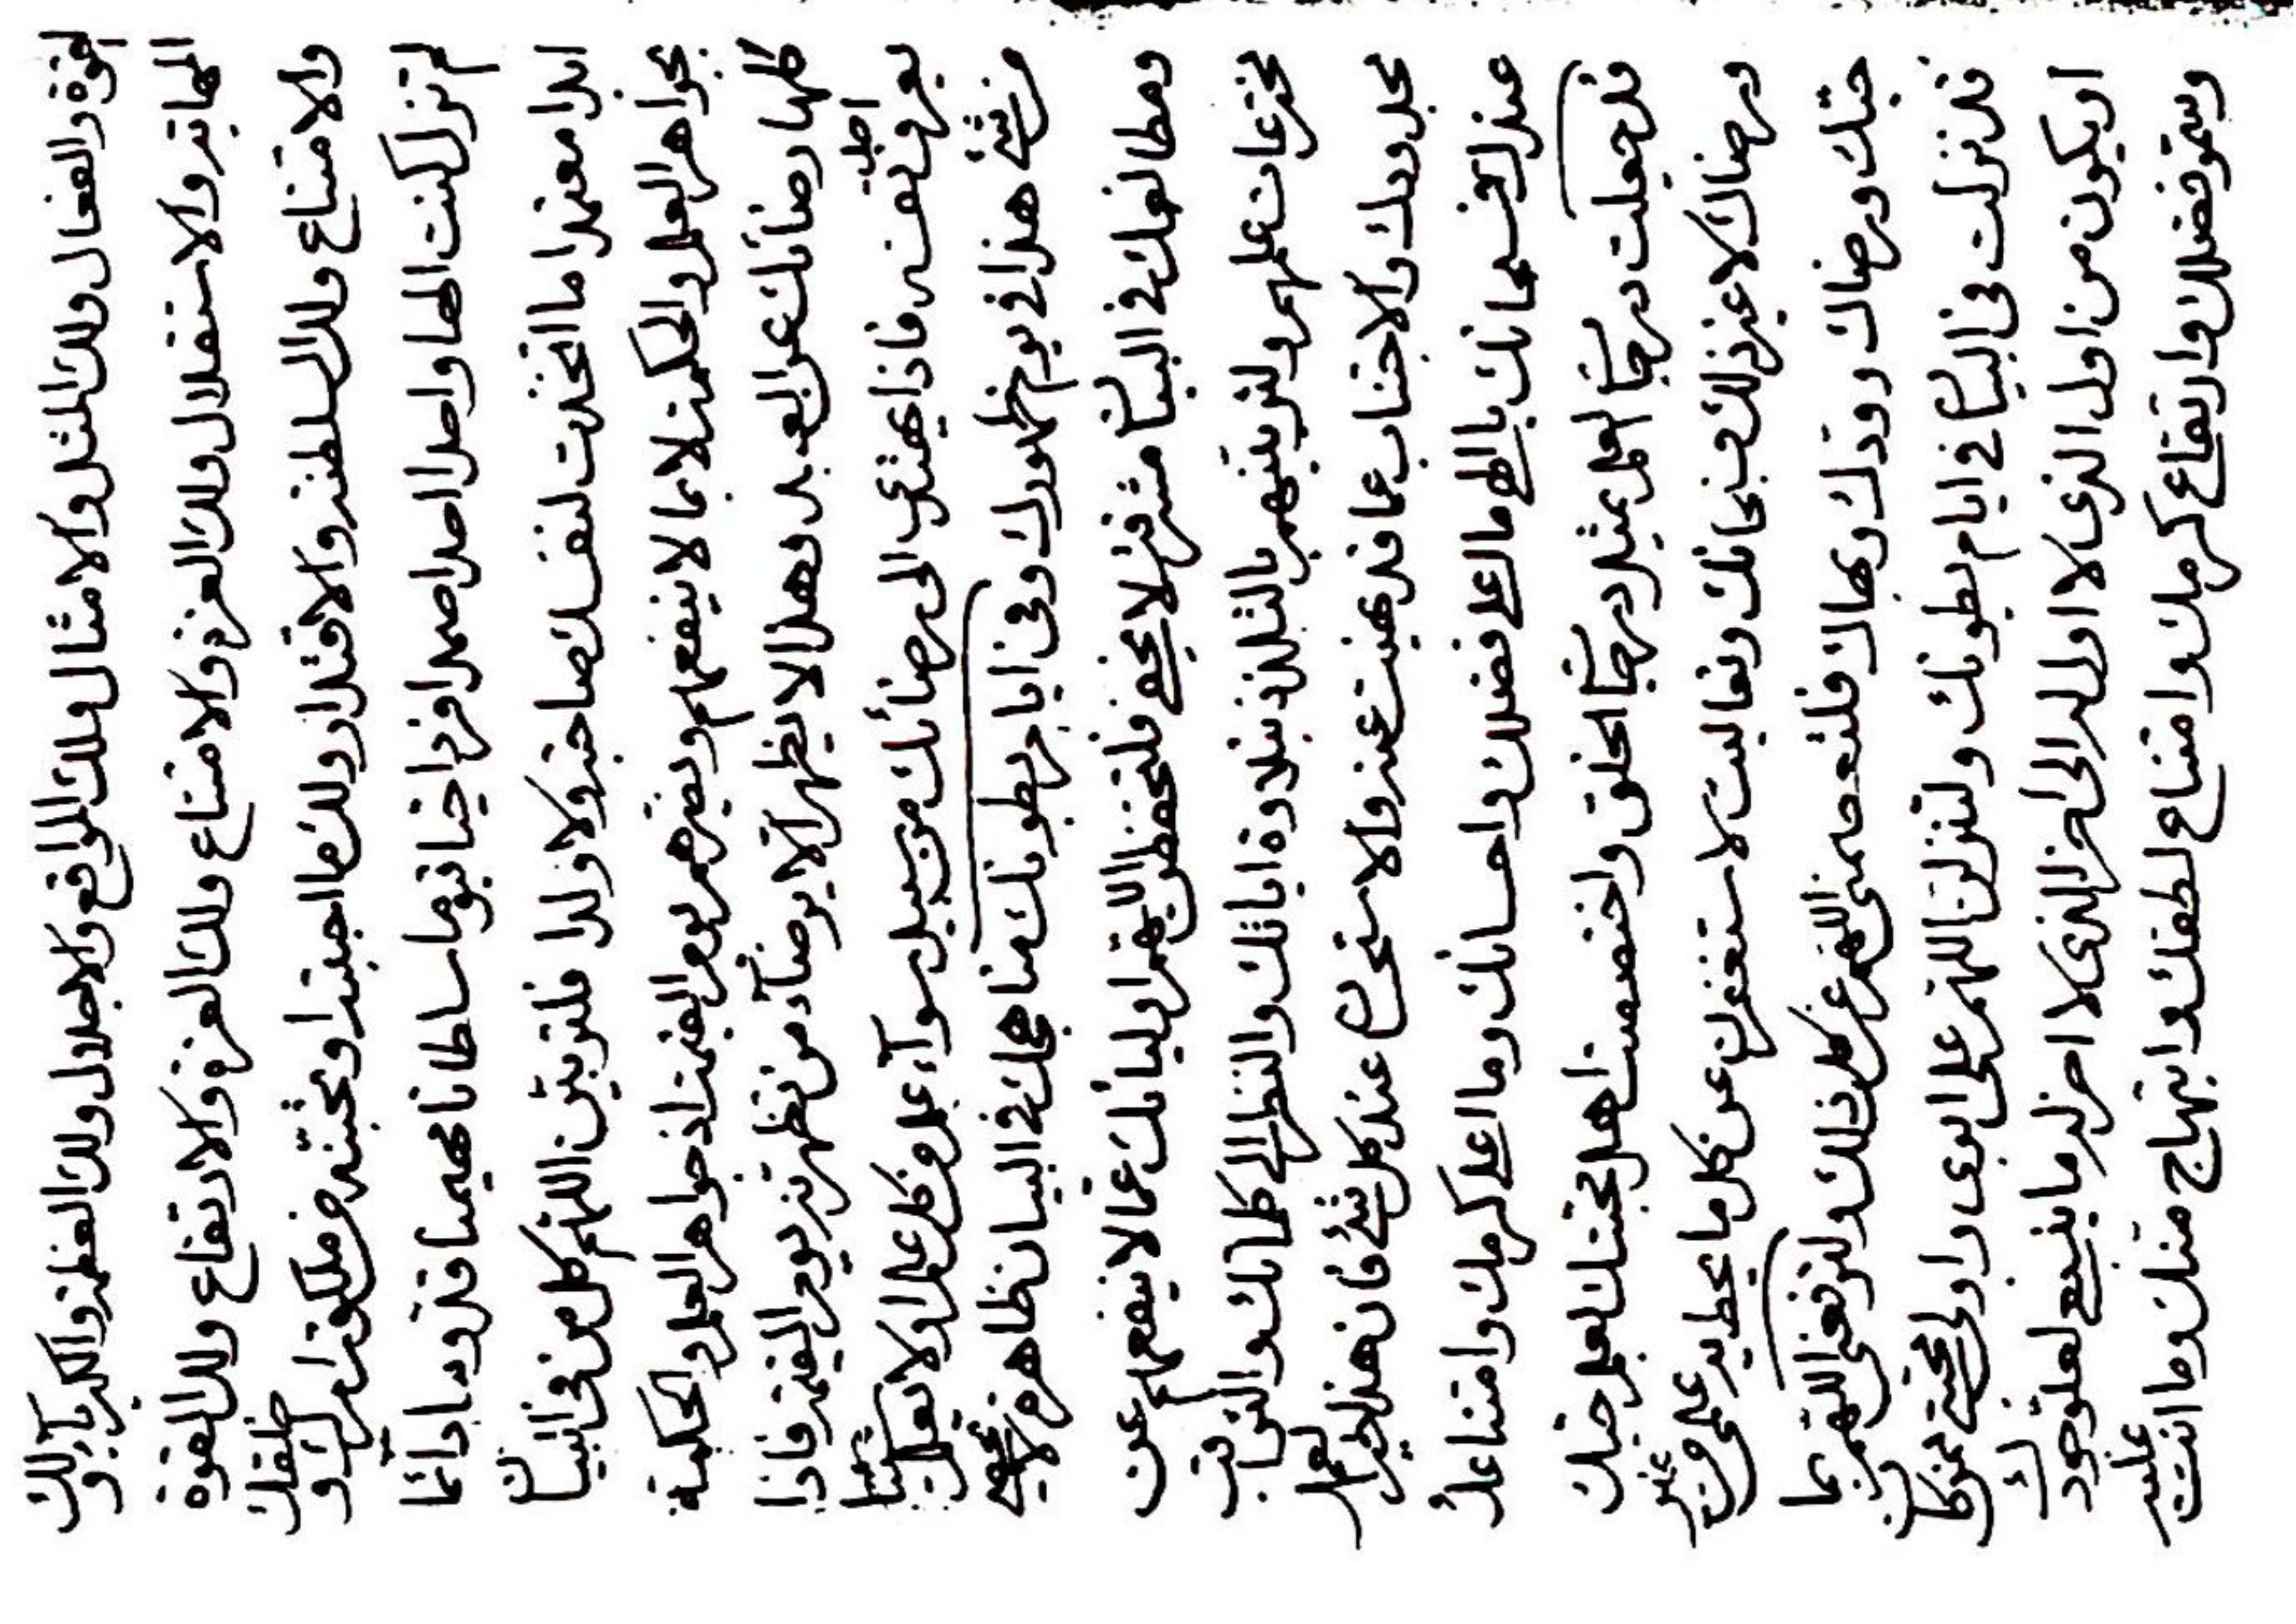 القوة والفعال ولك المثل والامثال ولك المواقع والاجلال ولك العظمة والكبرياء ولك
المهابة والاستقلال ولك العزة والامتناع ولك العزة والارتفاع ولك القوة
والامتناع ولك السلطنة والاقتدار ولك ما احببته او تحبنه من ملكوت امرك و خلقك
لم تزل كنت الها واحدا احدا صمدا فردا حيا قيوما سلطانا مهيمنا قدوسا دائما
ابدا معتمدا ما اتخذت لنفسك صاحبة ولا ولدا فلتربين اللهم كل من في البيان
بجواهر العلم والحكمة لا بما لا ينفعهم ويضرهم يوم القيمة اذ جواهر العلم والحكمة
كلها رضائك عن العبد وهذا لا يظهر الا برضاء من تظهرنه يوم القيمة فاذا
يعرف نفسه فاذا يهتدي احد الى رضائك من سبيل سواء علم كل علم او لا يعلم شيئا
من شئ هذا في يوم ظهورك وفي ايام بطونك مناهجك في البيان ظاهرة لا يخفى
ومطالعك في البيان مشرقة لا يخفى فلتحفظن اللهم اوليائك عما لا ينفعهم عن
مخترعات علمهم ولتربينهم بالتلذذ بتلاوة اياتك والنظر الى كلماتك والتراقب
بحدودك والاجتناب عما قد نهيت عنه والاستحياء عند كل شئ فان هذا لخير العمل
عندك فسبحانك يا الهي ما اعلى فضلك واحسانك وما اعلى كرمك وامتناعك
قد جعلت درجات العلم بمثل درجات الخلق واختصصت اهل محبتك بعلم حبك
ورضاك لا غير ذلك فسبحانك وتعاليت لاستغفرنك عن كل ما يحط به علمي من غير
حبك ورضاك وودك وبهاك فلتعصمني اللهم عن كل ذلك ولترفعني اللهم بما
قد نزلت في البيان في ايام بطونك ولتنزلن اللهم على ابوي واولى محبتي
ان يكون من اول الذي لا اول له الى اخر الذي لا اخر له ما ينبغي لعلو جودك
وسمو فضلك وارتفاع كرمك وامتناع لطفك وابتهاج منك وما انت عليه